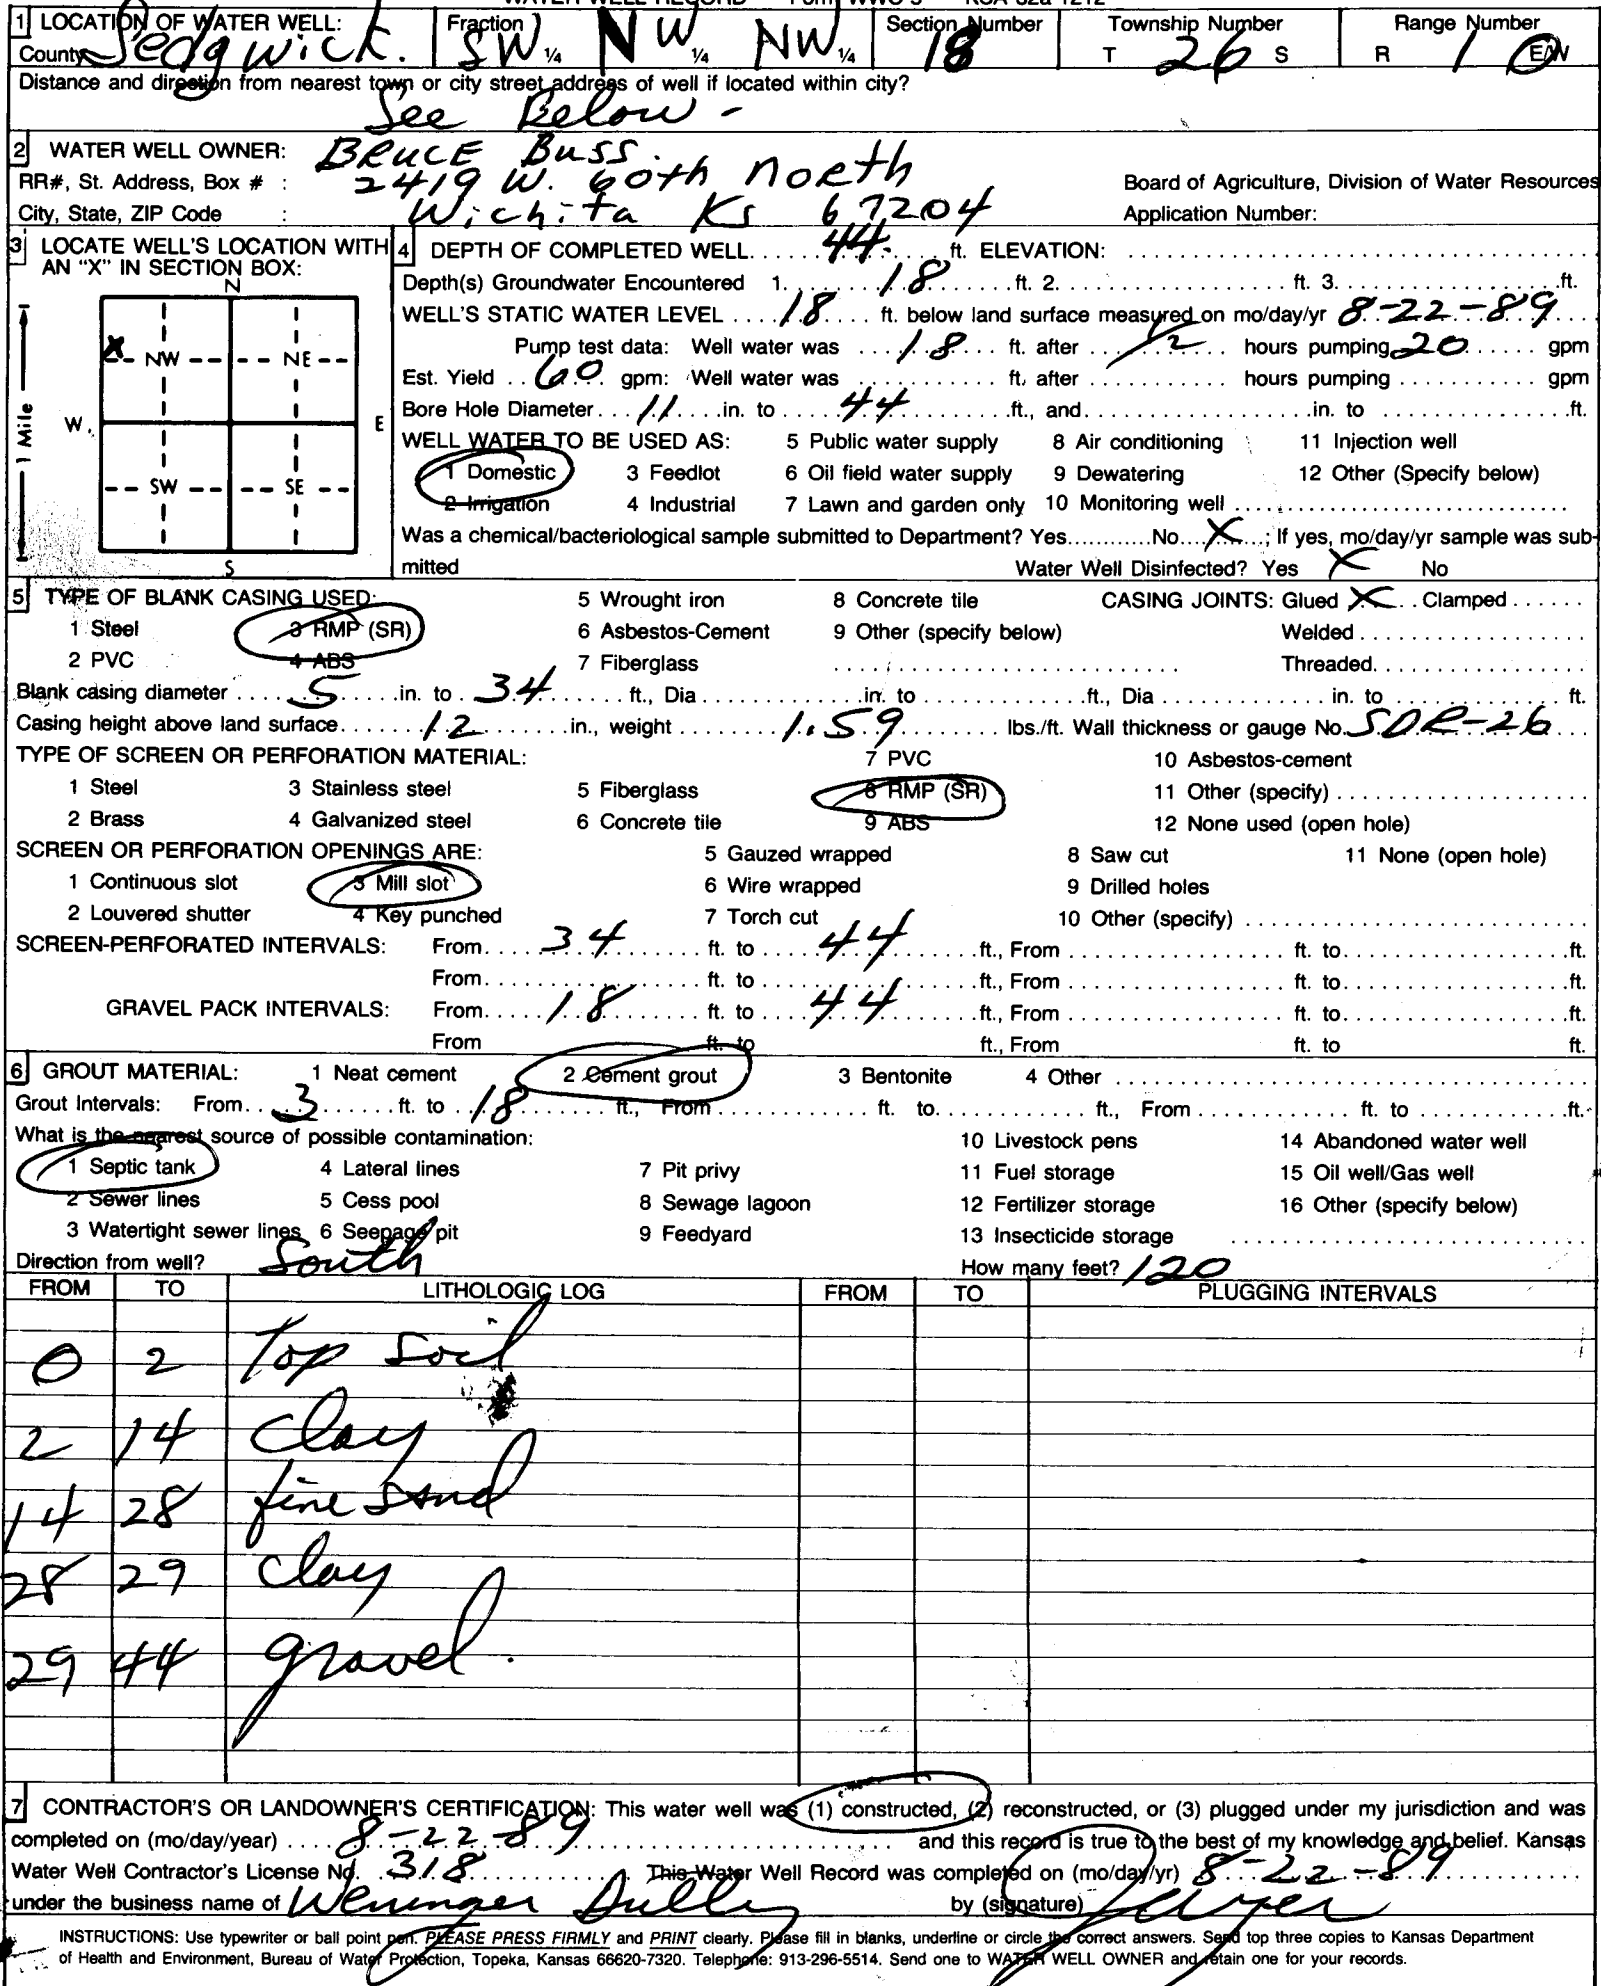 WATER WELL RECORD Form WWC-5 KSA 82a-1212
1 LOCATION OF WATER WELL: Fraction Section Number Township Number Range Number
County Sedgwick. SW ¼ NW ¼ NW ¼ 18 T 26 S R 1 E/W
Distance and direction from nearest town or city street address of well if located within city?
See Below -
2 WATER WELL OWNER: BRUCE BUSS.
RR#, St. Address, Box # : 2419 W. 60th North Board of Agriculture, Division of Water Resources
City, State, ZIP Code : Wichita Ks 67204 Application Number:
3 LOCATE WELL'S LOCATION WITH AN "X" IN SECTION BOX:
N
X NW NE
W E
SW SE
S
1 Mile
4 DEPTH OF COMPLETED WELL 44 ft. ELEVATION:
Depth(s) Groundwater Encountered 1. 18 ft. 2. ft. 3. ft.
WELL'S STATIC WATER LEVEL 18 ft. below land surface measured on mo/day/yr 8-22-89
Pump test data: Well water was 18 ft. after 1/2 hours pumping 20 gpm
Est. Yield 60 gpm: Well water was ft. after hours pumping gpm
Bore Hole Diameter 11 in. to 44 ft., and in. to ft.
WELL WATER TO BE USED AS: 5 Public water supply 8 Air conditioning 11 Injection well
1 Domestic 3 Feedlot 6 Oil field water supply 9 Dewatering 12 Other (Specify below)
2 Irrigation 4 Industrial 7 Lawn and garden only 10 Monitoring well
Was a chemical/bacteriological sample submitted to Department? Yes No X ; If yes, mo/day/yr sample was sub-
mitted Water Well Disinfected? Yes X No
5 TYPE OF BLANK CASING USED: 5 Wrought iron 8 Concrete tile CASING JOINTS: Glued X Clamped
1 Steel 3 RMP (SR) 6 Asbestos-Cement 9 Other (specify below) Welded
2 PVC 4 ABS 7 Fiberglass Threaded
Blank casing diameter 5 in. to 34 ft., Dia in. to ft., Dia in. to ft.
Casing height above land surface 12 in., weight 1.59 lbs./ft. Wall thickness or gauge No. SDR-26
TYPE OF SCREEN OR PERFORATION MATERIAL: 7 PVC 10 Asbestos-cement
1 Steel 3 Stainless steel 5 Fiberglass 8 RMP (SR) 11 Other (specify)
2 Brass 4 Galvanized steel 6 Concrete tile 9 ABS 12 None used (open hole)
SCREEN OR PERFORATION OPENINGS ARE: 5 Gauzed wrapped 8 Saw cut 11 None (open hole)
1 Continuous slot 3 Mill slot 6 Wire wrapped 9 Drilled holes
2 Louvered shutter 4 Key punched 7 Torch cut 10 Other (specify)
SCREEN-PERFORATED INTERVALS: From 34 ft. to 44 ft., From ft. to ft.
From ft. to ft., From ft. to ft.
GRAVEL PACK INTERVALS: From 18 ft. to 44 ft., From ft. to ft.
From ft. to ft., From ft. to ft.
6 GROUT MATERIAL: 1 Neat cement 2 Cement grout 3 Bentonite 4 Other
Grout Intervals: From 3 ft. to 18 ft., From ft. to ft., From ft. to ft.
What is the nearest source of possible contamination: 10 Livestock pens 14 Abandoned water well
1 Septic tank 4 Lateral lines 7 Pit privy 11 Fuel storage 15 Oil well/Gas well
2 Sewer lines 5 Cess pool 8 Sewage lagoon 12 Fertilizer storage 16 Other (specify below)
3 Watertight sewer lines 6 Seepage pit 9 Feedyard 13 Insecticide storage
Direction from well? South How many feet? 120
FROM TO LITHOLOGIC LOG FROM TO PLUGGING INTERVALS
0 2 Top Soil
2 14 Clay
14 28 fine Sand
28 29 Clay
29 44 gravel.
7 CONTRACTOR'S OR LANDOWNER'S CERTIFICATION: This water well was (1) constructed, (2) reconstructed, or (3) plugged under my jurisdiction and was
completed on (mo/day/year) 8-22-89 and this record is true to the best of my knowledge and belief. Kansas
Water Well Contractor's License No. 318 This Water Well Record was completed on (mo/day/yr) 8-22-89
under the business name of Weninger by (signature)
INSTRUCTIONS: Use typewriter or ball point pen. PLEASE PRESS FIRMLY and PRINT clearly. Please fill in blanks, underline or circle the correct answers. Send top three copies to Kansas Department
of Health and Environment, Bureau of Water Protection, Topeka, Kansas 66620-7320. Telephone: 913-296-5514. Send one to WATER WELL OWNER and retain one for your records.